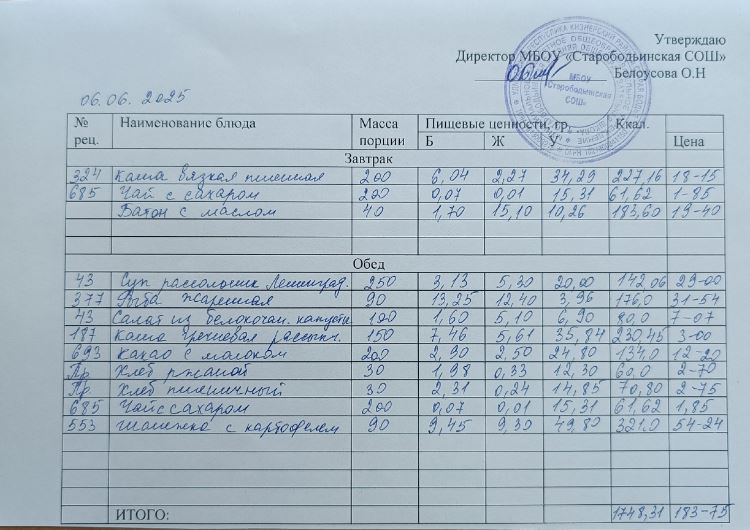 Утверждаю
Директор МБОУ «Старободьинская СОШ»
Белоусова О.Н
МБОУ
Старободьинская
СОШ
06.06. 2025
№ рец. Наименование блюда Масса порции Пищевые ценности, гр. Б Ж У Ккал. Цена
Завтрак
324 Каша вязкая пшенная 200 6,04 2,27 34,29 227,16 18-15
685 Чай с сахаром 200 0,07 0,01 15,31 61,62 1-85
Батон с маслом 40 1,70 15,10 10,26 183,60 19-40
Обед
43 Суп рассольник Ленинград. 250 3,13 5,30 20,00 142,06 29-00
377 Рыба жаренная 90 13,25 12,40 3,96 176,0 31-54
43 Салат из белокочан. капусты 100 1,60 5,10 6,90 80,0 7-07
187 Каша гречневая рассыпч. 150 7,46 5,61 35,84 230,45 3-00
693 Какао с молоком 200 2,90 2,50 24,80 134,0 12-20
Пр. Хлеб ржаной 30 1,98 0,33 12,30 60,0 2-70
Пр. Хлеб пшеничный 30 2,31 0,24 14,85 70,80 2-75
685 Чай с сахаром 200 0,07 0,01 15,31 61,62 1,85
553 Шанежка с картофелем 90 9,45 9,30 49,80 321,0 54-24
ИТОГО: 1748,31 183-75